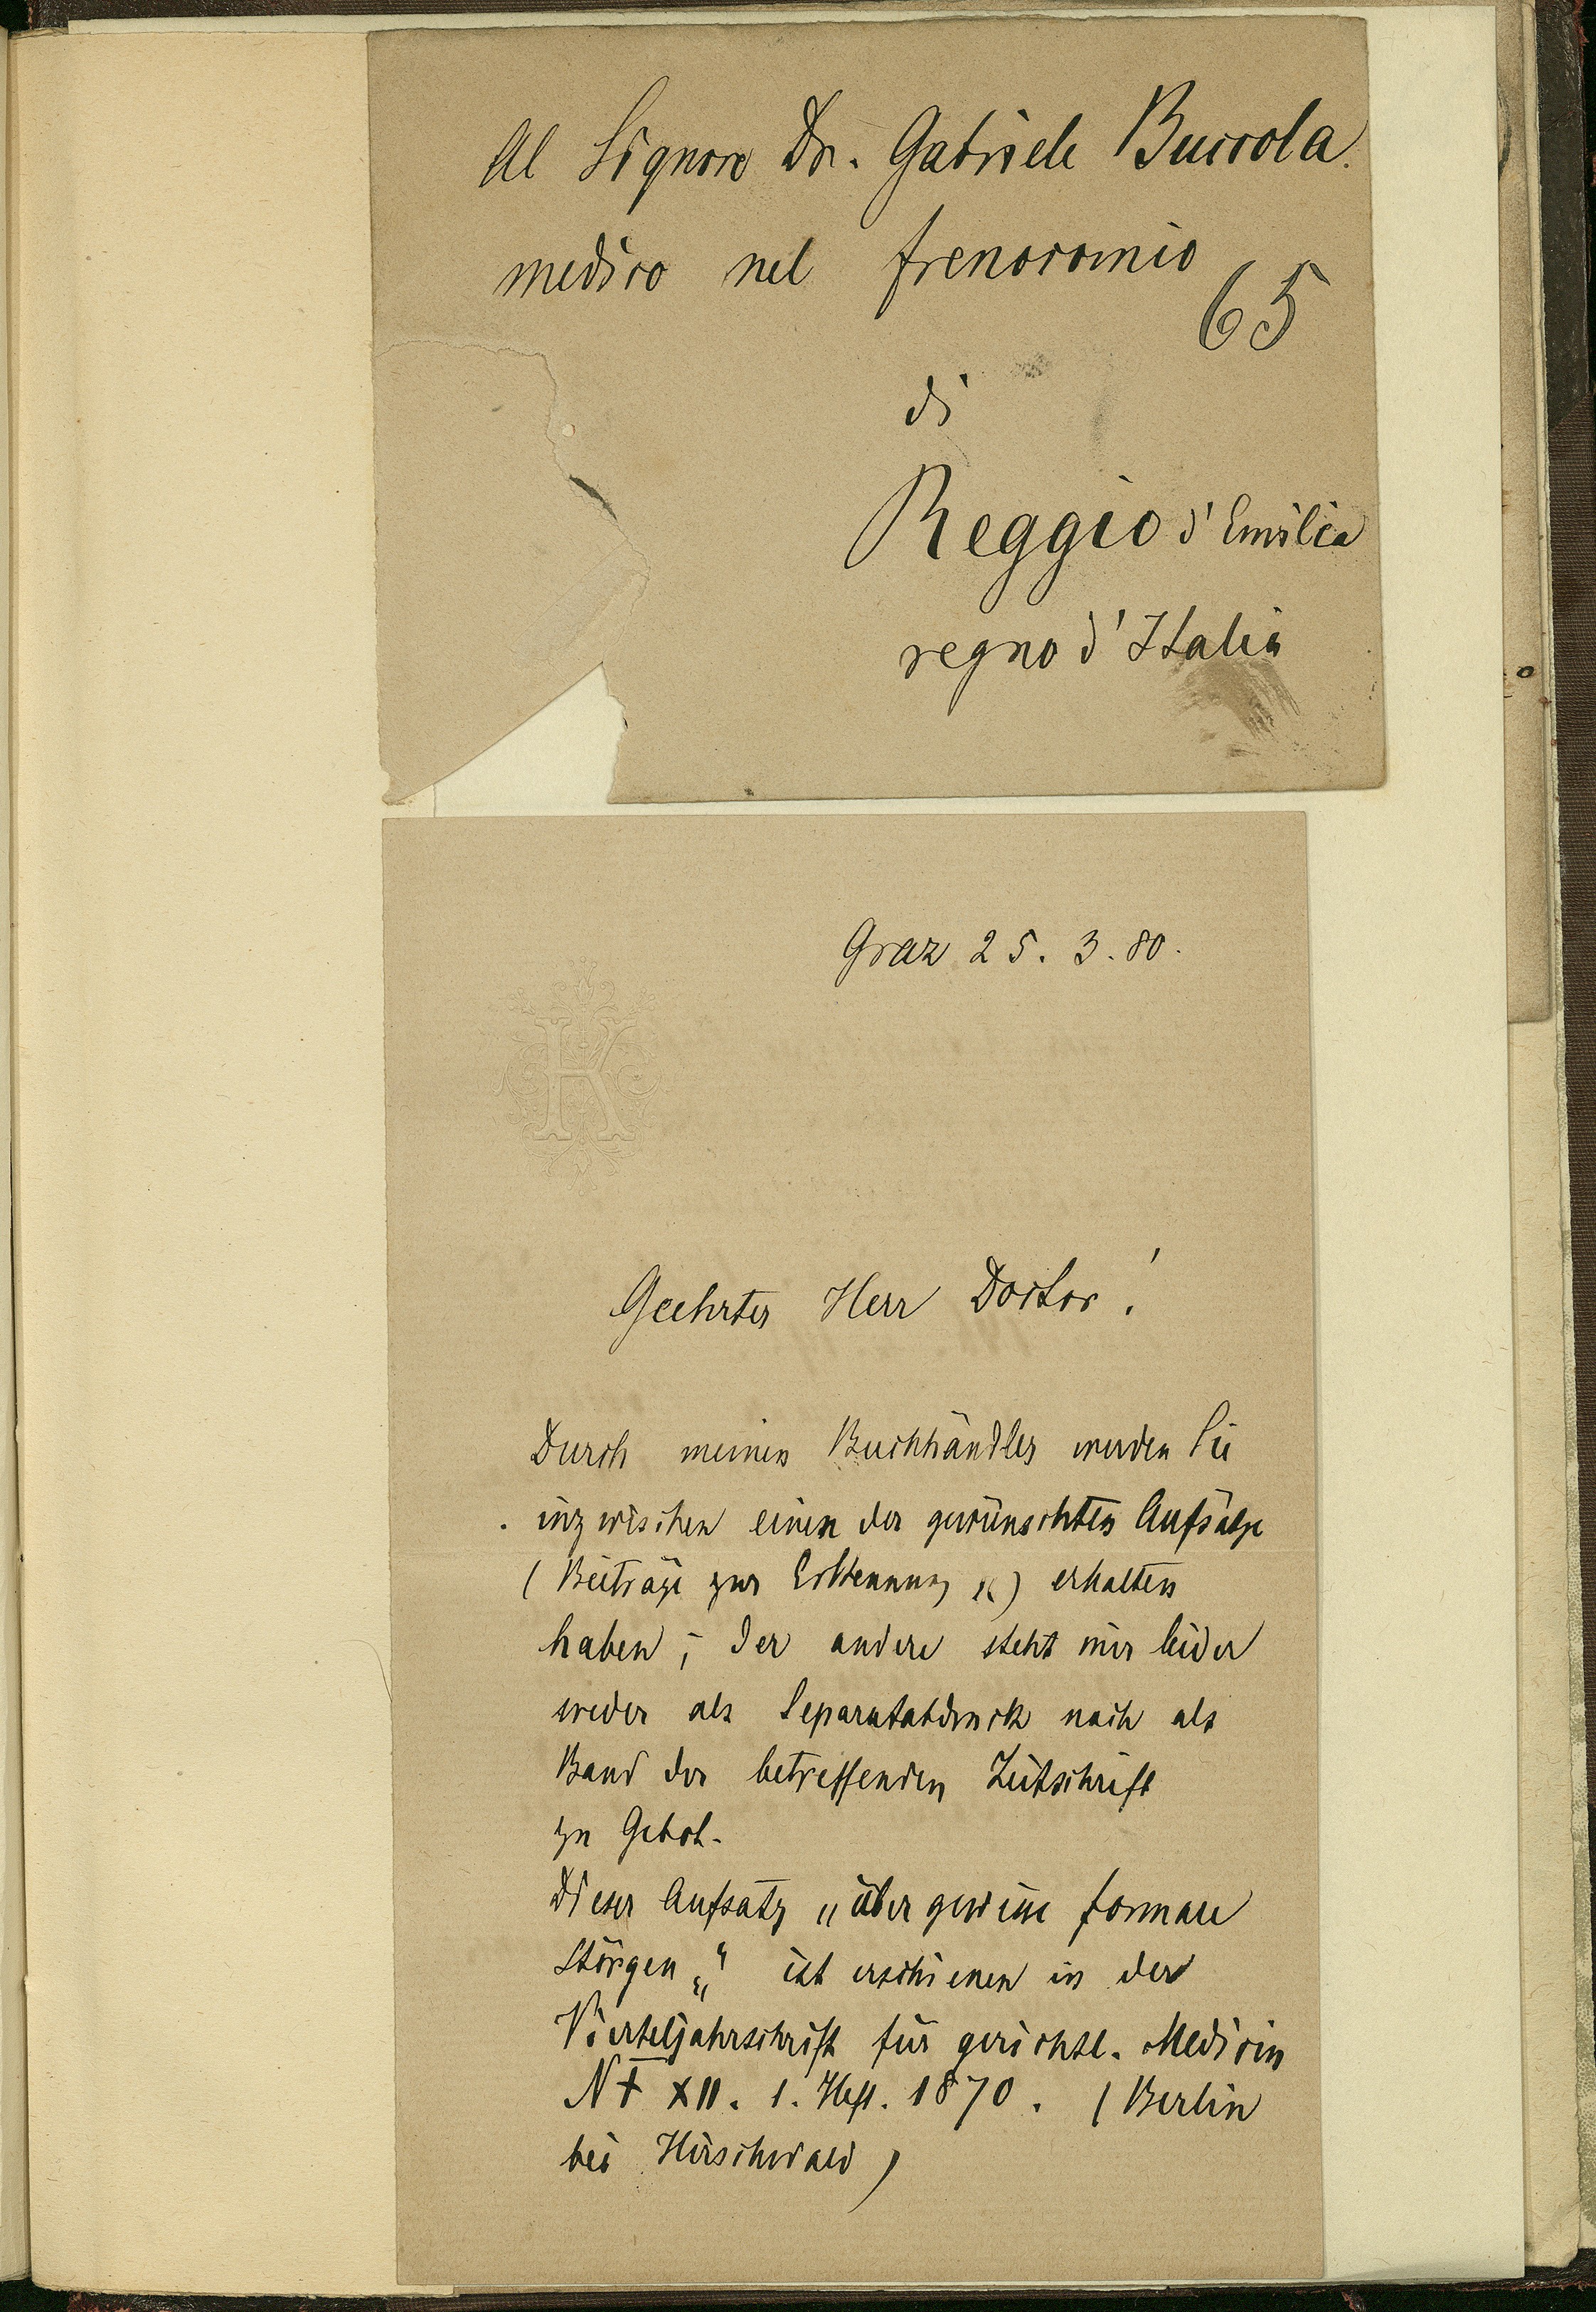 Al Signore Dr. Gabriele Buccola.
medico nel frenocomio
65
di
Reggio d'Emilia
regno d'Italia
Graz 25. 3. 80.
K
Geehrter Herr Doctor!
Durch meinen Buchhändler werden Sie
inzwischen einen der gewünschten Aufsätze
(Beiträge zur Erkennung &c) erhalten
haben; der andere steht mir leider
weder als Separatabdruck noch als
Band der betreffenden Zeitschrift
zu Gebot.
Dieser Aufsatz „über gewisse formale
Störgen„“ ist erschienen in der
Vierteljahrschrift für gerichtl. Medicin
XII. 1. Heft. 1870. (Berlin
bei Hirschwald)